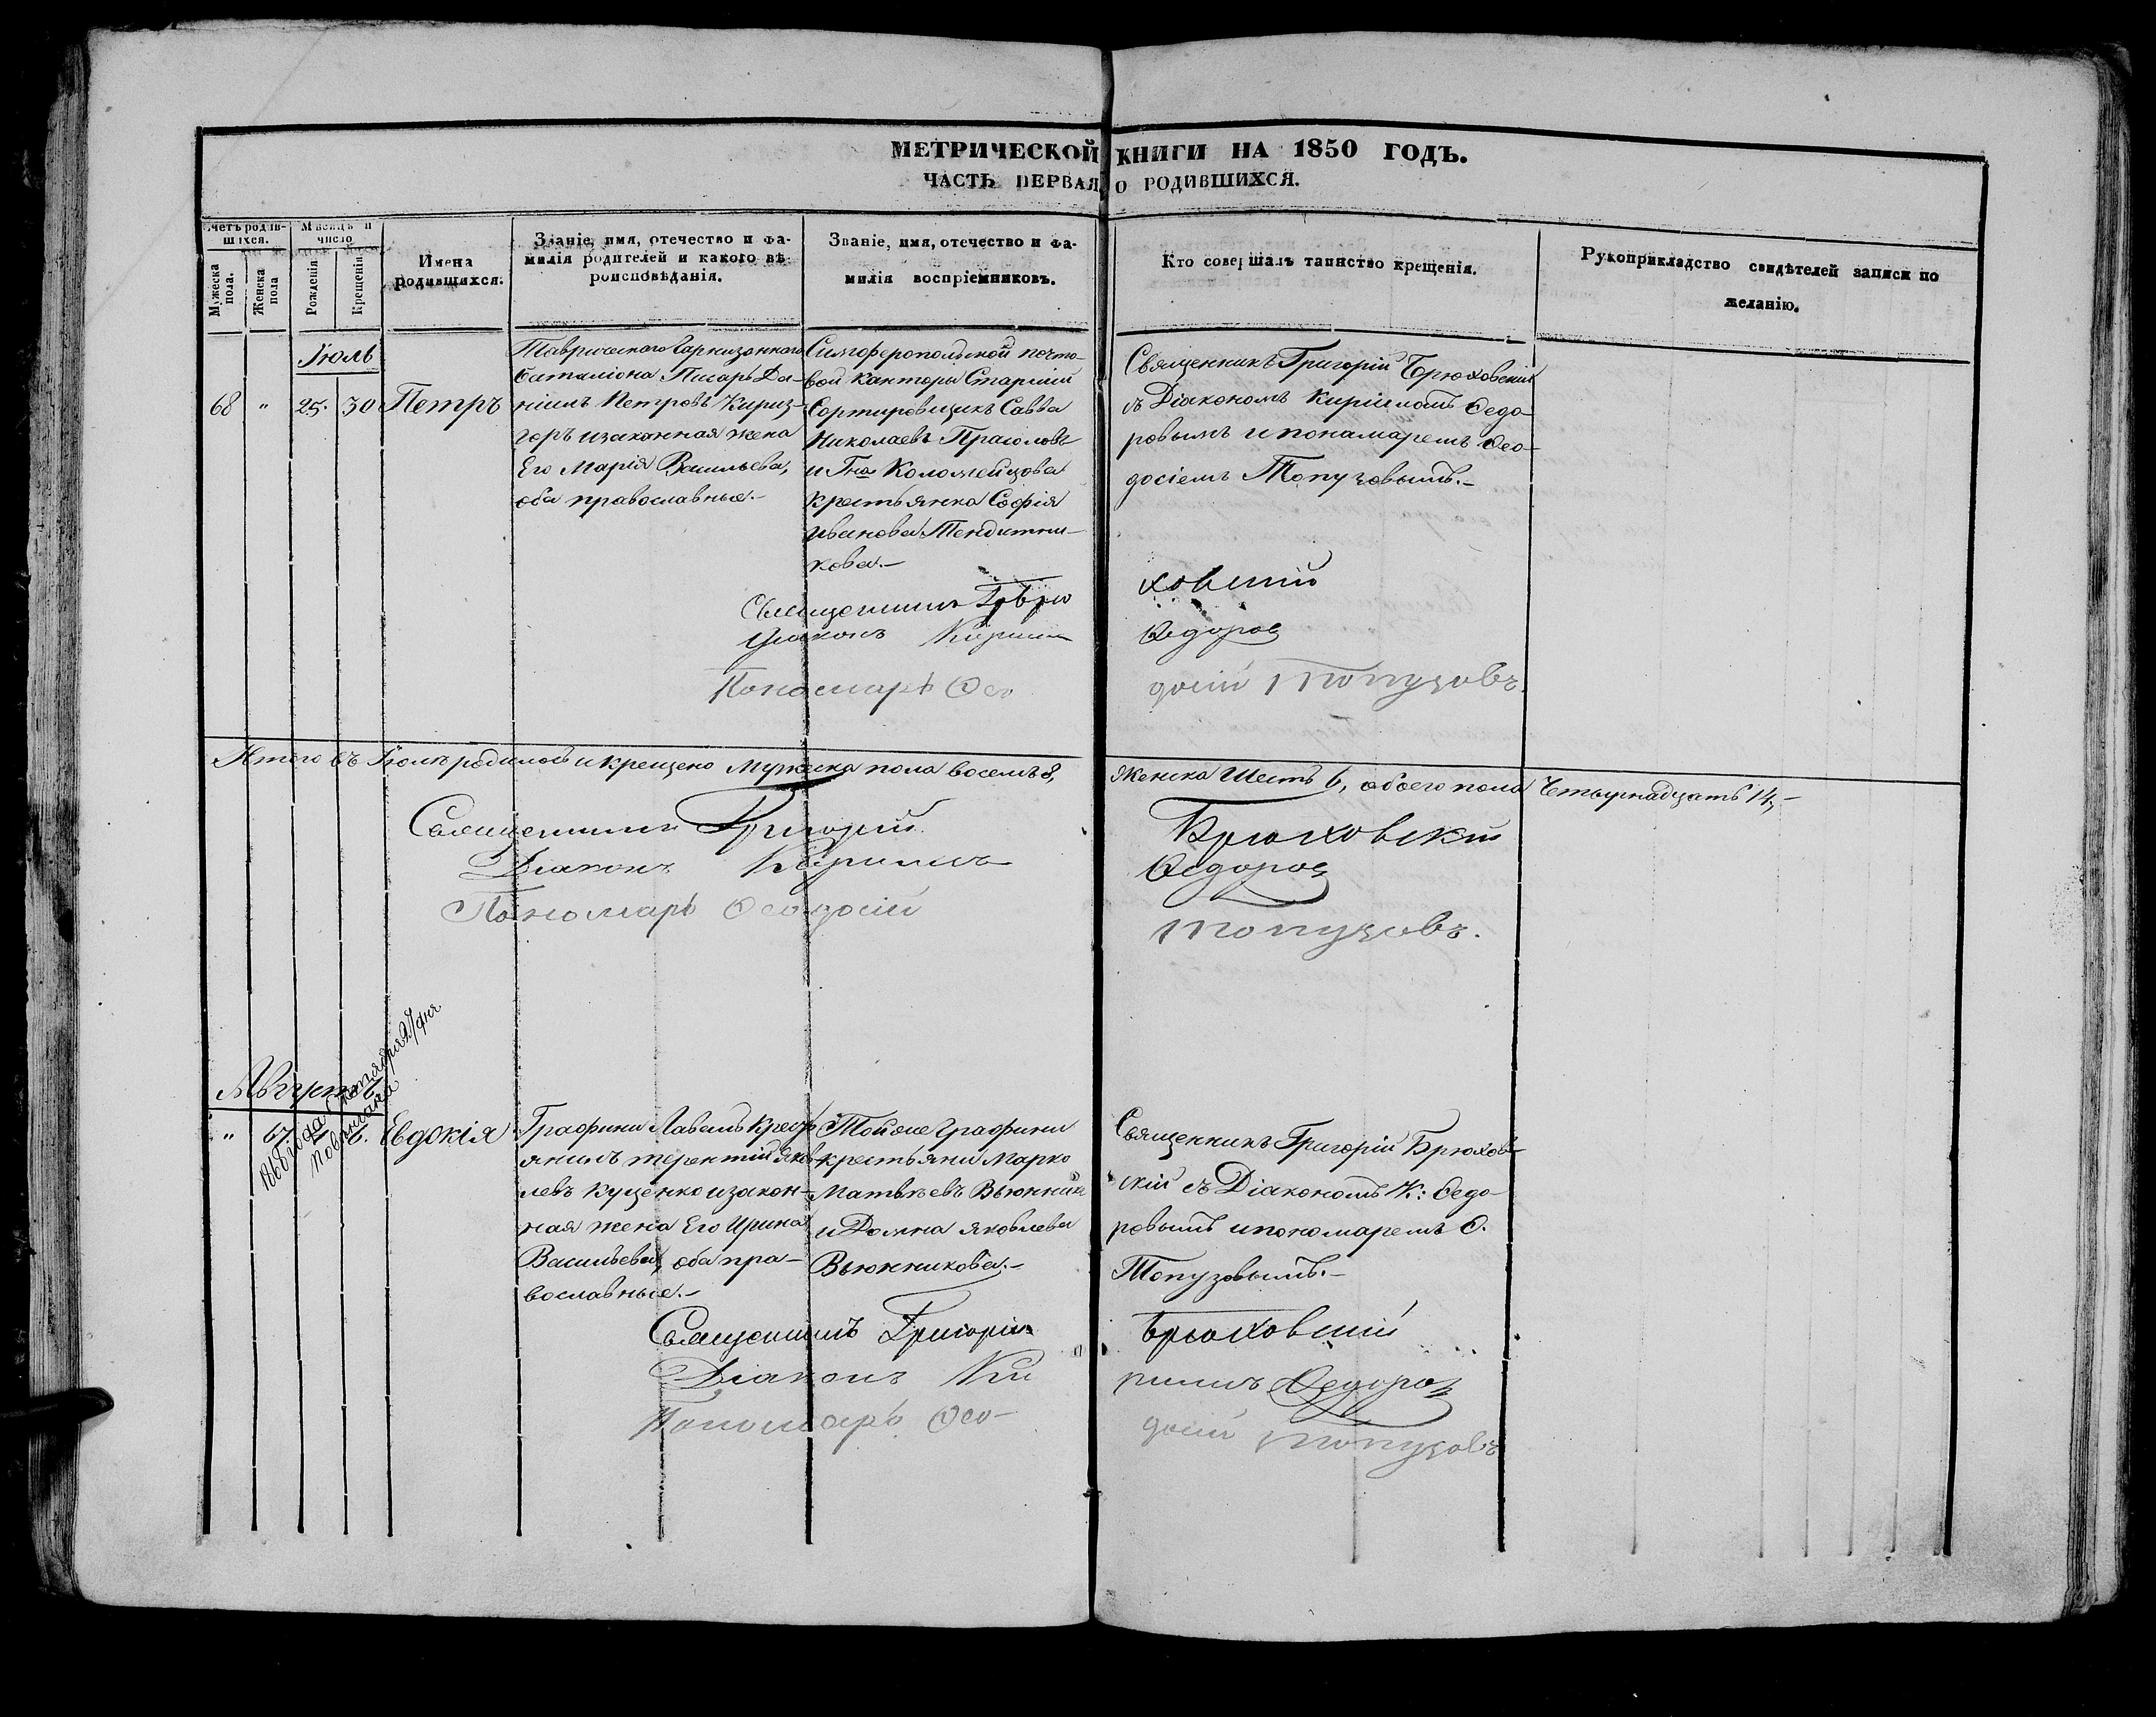 МЕТРИЧЕСКОЙ КНИГИ НА 1850 ГОДЪ.
ЧАСТЬ ПЕРВАЯ О РОДИВШИХСЯ.
Счетъ родив-
шихся.
Мѣсяцъ и
число
Мужеска пола.
Женска пола
Рожденія
Крещенія
Имена
родившихся.
Званіе, имя, отечество и фа-
милія родителей и какого вѣ-
роисповѣданія.
Званіе, имя, отечество и фа-
милія воспріемниковъ.
Кто совершалъ таинство крещенія.
Рукоприкладство свидѣтелей записи по
желанію.
Іюль
68 " 25. 30 Петръ
Таврическаго Гарнизоннаго
баталіона Писарь Да-
ніилъ Петровъ
и законная жена
Его Марія Васильева,
оба православные.-
Симферопольской почто-
вой канторы Старшій
Сортировщикъ Савва
Николаевъ
и Г-на Коломейцова
крестьянка Софія
Иванова Тендитни-
кова.-
Священникъ Григорій Брюховскій
съ Діакономъ Кириломъ Ѳедо-
ровымъ и понамаремъ Ѳео-
досіемъ Топузовымъ.-
Священникъ Г Брю ховскій
Діаконъ Кирилъ Ѳедоров
Пономарь Ѳео досій Топузовъ.
Итого въ Іюлѣ родилось и крещено Мужеска пола восемь 8, Женска Шесть 6, обоего пола Четырнадцать 14,-
Священникъ Григорій Брюховскій
Діаконъ Кирилъ Ѳедоров
Пономарь Ѳеодосій Топузовъ.
Августъ
" 67. 6. Евдокія
1868 года Сентября дня
Повѣнчана
Графини Лаваль Кресть
янинъ Терентій Яков-
левъ Куценко и закон-
ная жена Его Ирина
Васильева, оба пра-
вославные.-
Той же Графини
крестьяни Марко
Матвѣевъ Вьюнник
и Домна Яковлева
Вьюнникова.-
Священникъ Григорій Брюхов-
скій съ Діакономъ К: Ѳедо-
ровымъ и пономаремъ Ѳ.
Топузовымъ.-
Священникъ Григорій Брюховскій
Діаконъ Ки рилъ Ѳедоров
Пономарь Ѳео- досій Топузовъ